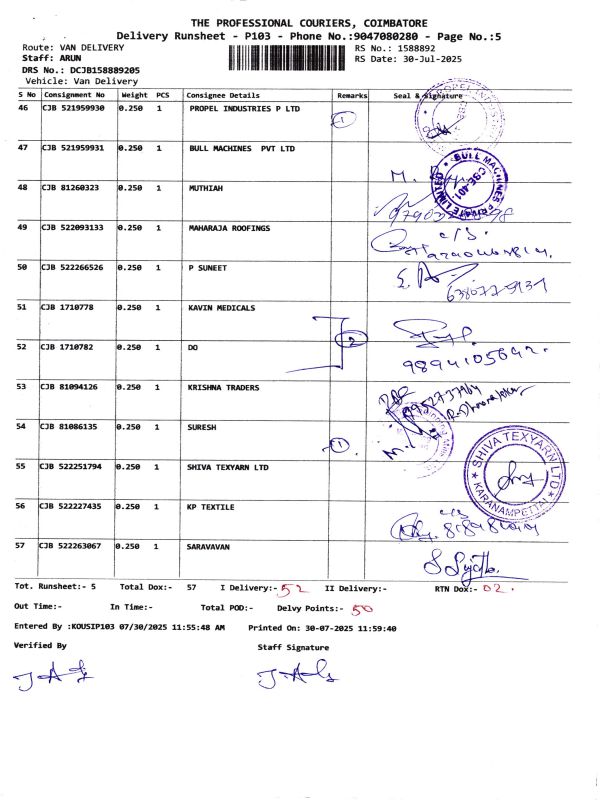 THE PROFESSIONAL COURIERS, COIMBATORE
Delivery Runsheet - P103 - Phone No.:9047080280 - Page No.:5
Route: VAN DELIVERY RS No.: 1588892
Staff: ARUN RS Date: 30-Jul-2025
DRS No.: DCJB158889205
Vehicle: Van Delivery
S No Consignment No Weight PCS Consignee Details Remarks Seal & Signature
46 CJB 521959930 0.250 1 PROPEL INDUSTRIES P LTD 1
47 CJB 521959931 0.250 1 BULL MACHINES PVT LTD
BULL MACHINES PRIVATE LIMITED
48 CJB 81260323 0.250 1 MUTHIAH
49 CJB 522093133 0.250 1 MAHARAJA ROOFINGS
50 CJB 522266526 0.250 1 P SUNEET
51 CJB 1710778 0.250 1 KAVIN MEDICALS
2
52 CJB 1710782 0.250 1 DO
9894105642.
53 CJB 81094126 0.250 1 KRISHNA TRADERS
54 CJB 81086135 0.250 1 SURESH 1
55 CJB 522251794 0.250 1 SHIVA TEXYARN LTD
SHIVA TEXYARN LTD KARANAMPETTAI
56 CJB 522227435 0.250 1 KP TEXTILE
57 CJB 522263067 0.250 1 SARAVAVAN
Tot. Runsheet:- 5 Total Dox:- 57 I Delivery:- 52 II Delivery:- RTN Dox:- 02.
Out Time:- In Time:- Total POD:- Delvy Points:- 50
Entered By :KOUSIP103 07/30/2025 11:55:48 AM Printed On: 30-07-2025 11:59:40
Verified By Staff Signature